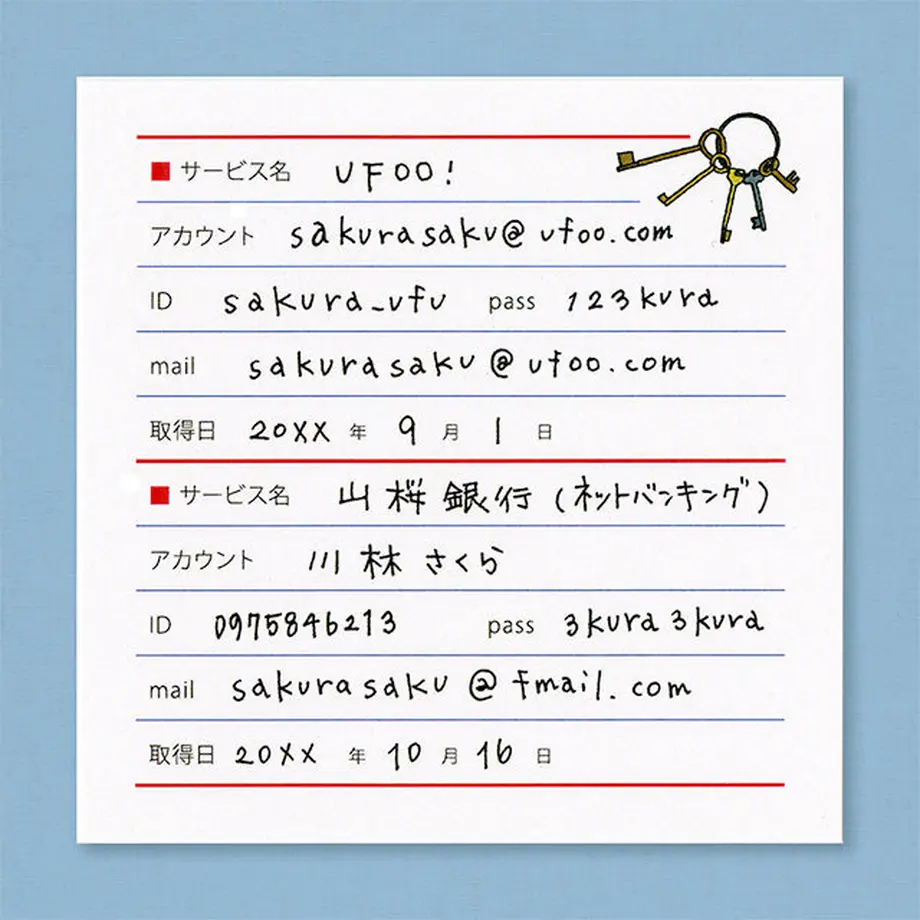 ■ サービス名 UFOO!
アカウント sakurasaku@ufoo.com
ID sakura_ufu pass 123kura
mail sakurasaku@ufoo.com
取得日 20XX 年 9 月 1 日
■ サービス名 山桜銀行(ネットバンキング)
アカウント 川林さくら
ID 0975846213 pass 3kura3kura
mail sakurasaku@fmail.com
取得日 20XX 年 10 月 16 日